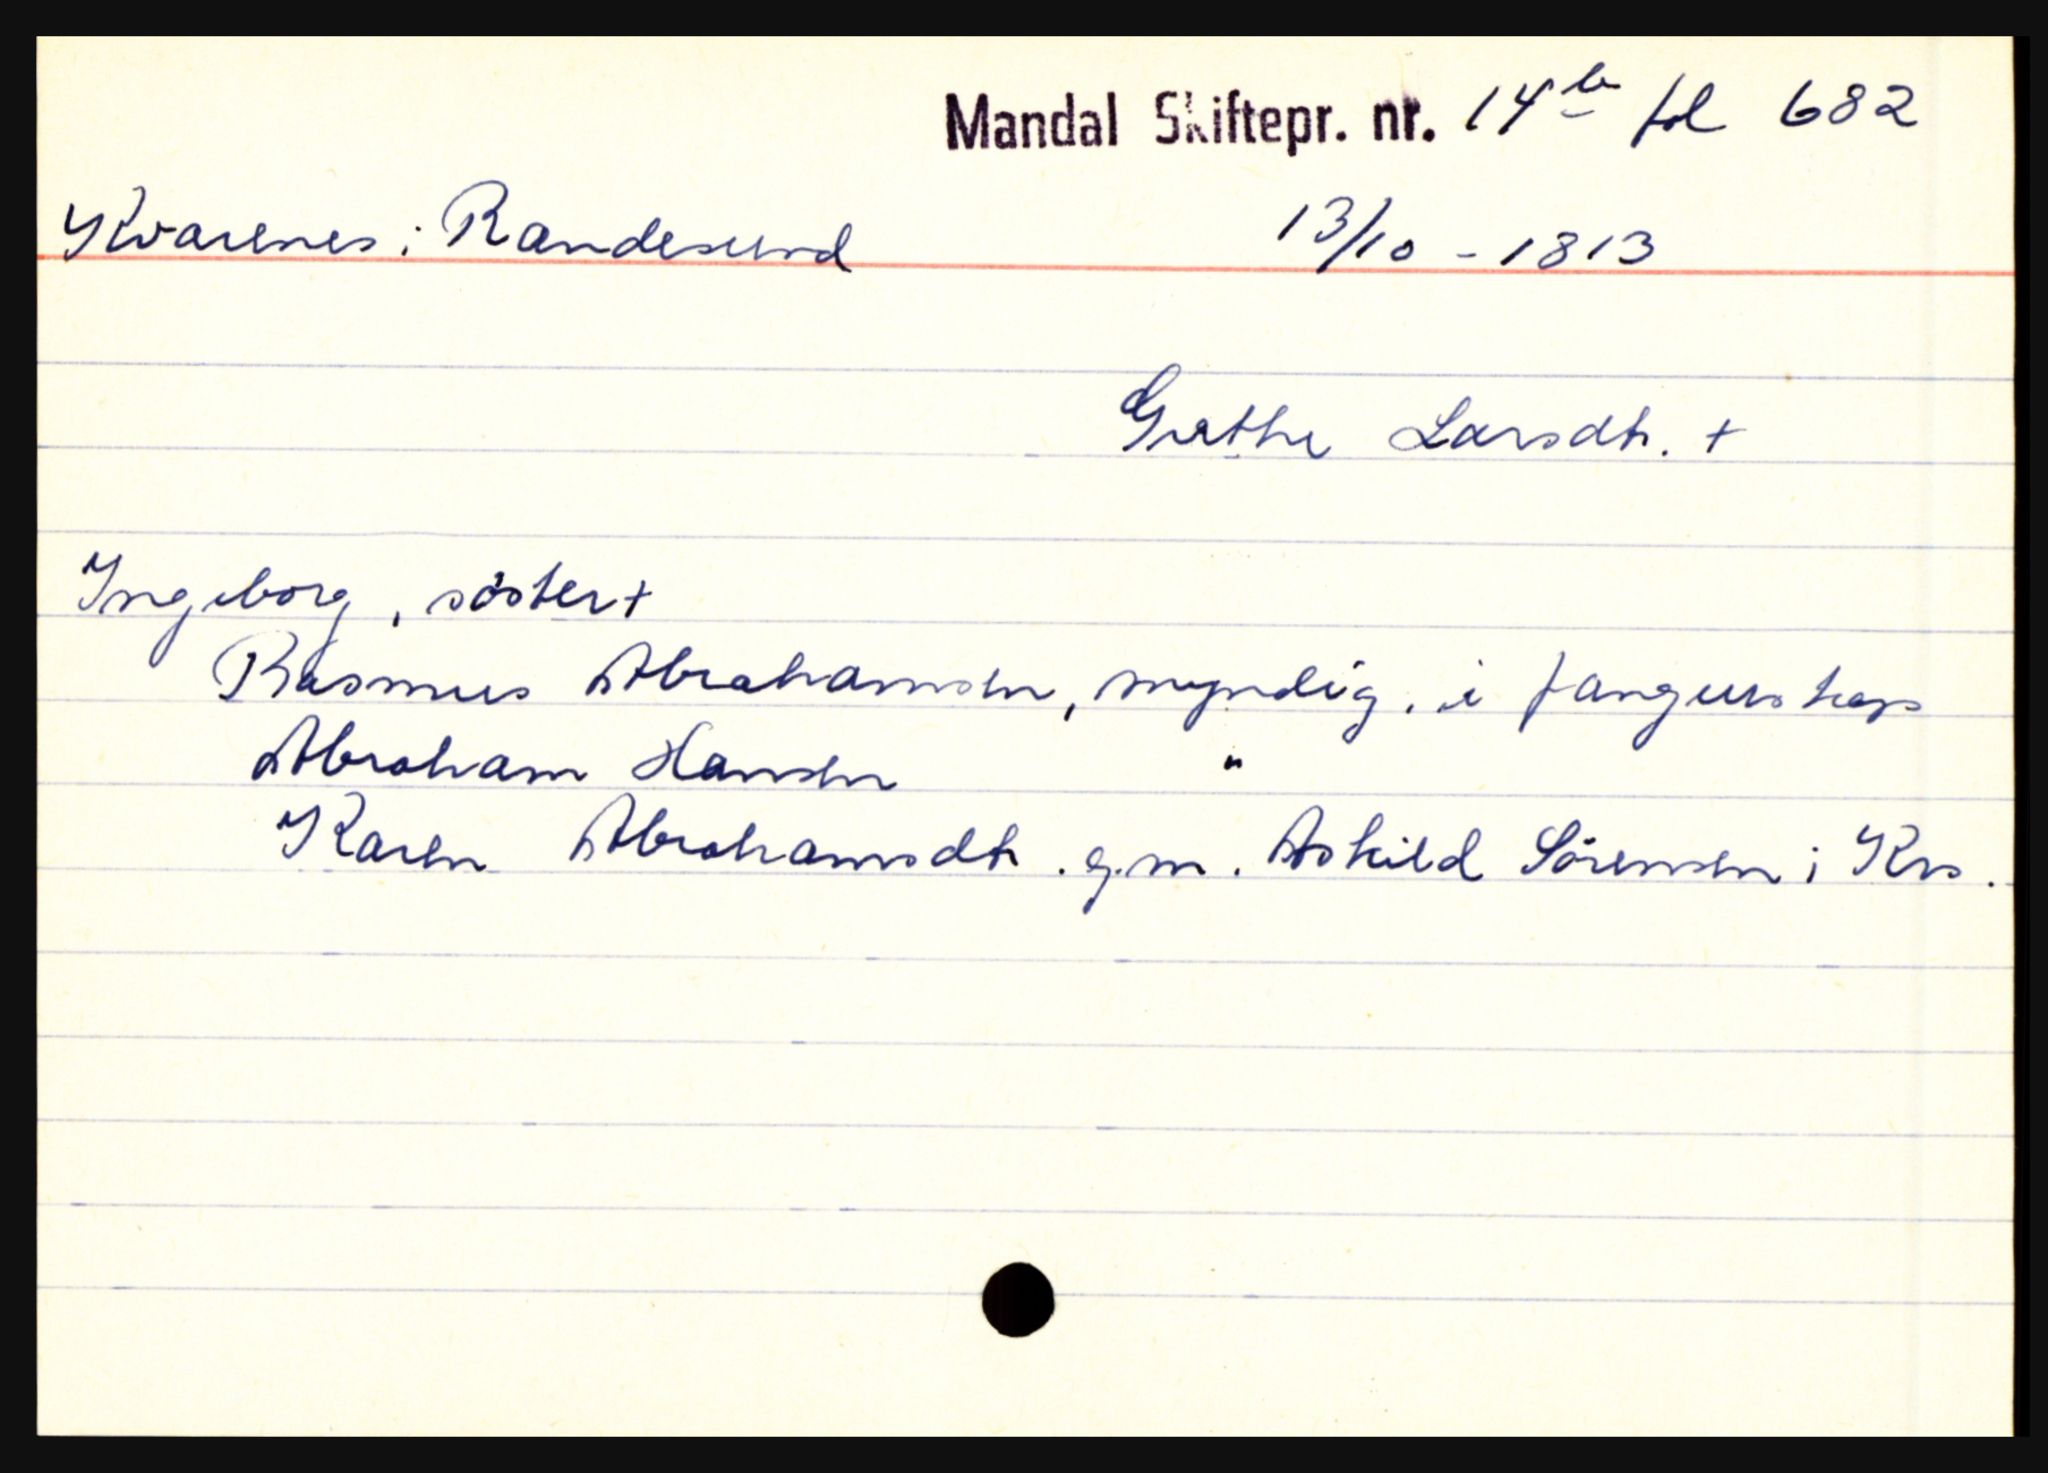 Mandal Skiftepr. nr. 14b fol 682
Kvarenes i Randesund 13/10 - 1813
Grethe Larsdtr. +
Ingeborg, söster +
Rasmus Abrahamsen, myndig. i fangenskap
Abraham Hansen "
Karen Abrahamsdtr. g.m. Askild Sörensen i Krs.